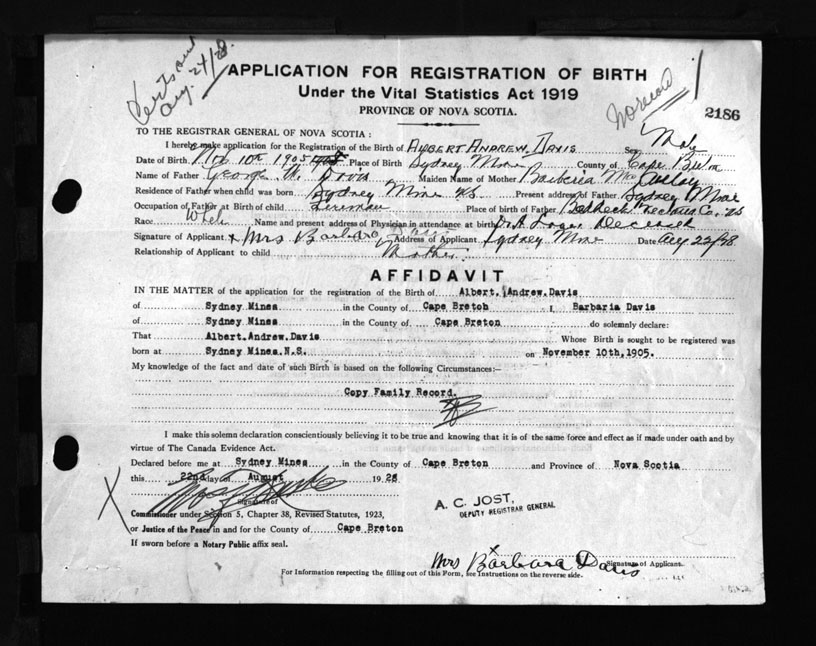 Sent out
Aug. 24/28.
No record
2186
APPLICATION FOR REGISTRATION OF BIRTH
Under the Vital Statistics Act 1919
PROVINCE OF NOVA SCOTIA.
TO THE REGISTRAR GENERAL OF NOVA SCOTIA :
I hereby make application for the Registration of the Birth of Albert Andrew Davis Sex Male
Date of Birth Nov 10th 1905 Place of Birth Sydney Mines County of Cape Breton
Name of Father George W. Davis Maiden Name of Mother Barberia
Residence of Father when child was born Sydney Mines NS Present address of Father Sydney Mines
Occupation of Father at Birth of child Fireman Place of birth of Father Baddeck Co. NS
Race White Name and present address of Physician in attendance at birth Deceased
Signature of Applicant x Mrs Barbara Davis Address of Applicant Sydney Mines Date Aug 22/28
Relationship of Applicant to child Mother.
AFFIDAVIT
IN THE MATTER of the application for the registration of the Birth of Albert. Andrew.Davis
of Sydney Mines in the County of Cape Breton I, Barbaria Davis
of Sydney Mines in the County of Cape Breton do solemnly declare:
That Albert.Andrew.Davis Whose Birth is sought to be registered was
born at Sydney Mines.N.S. on November 10th,1905.
My knowledge of the fact and date of such Birth is based on the following Circumstances:—
Copy Family Record.
I make this solemn declaration conscientiously believing it to be true and knowing that it is of the same force and effect as if made under oath and by
virtue of The Canada Evidence Act.
Declared before me at Sydney Mines in the County of Cape Breton and Province of Nova Scotia
this 22nd day of August 1928
Signature of
Commissioner under Section 5, Chapter 38, Revised Statutes, 1923,
or Justice of the Peace in and for the County of Cape Breton
If sworn before a Notary Public affix seal.
A. C. JOST,
DEPUTY REGISTRAR GENERAL
Mrs Barbara Davis Signature of Applicant.
For Information respecting the filling out of this Form, see Instructions on the reverse side.